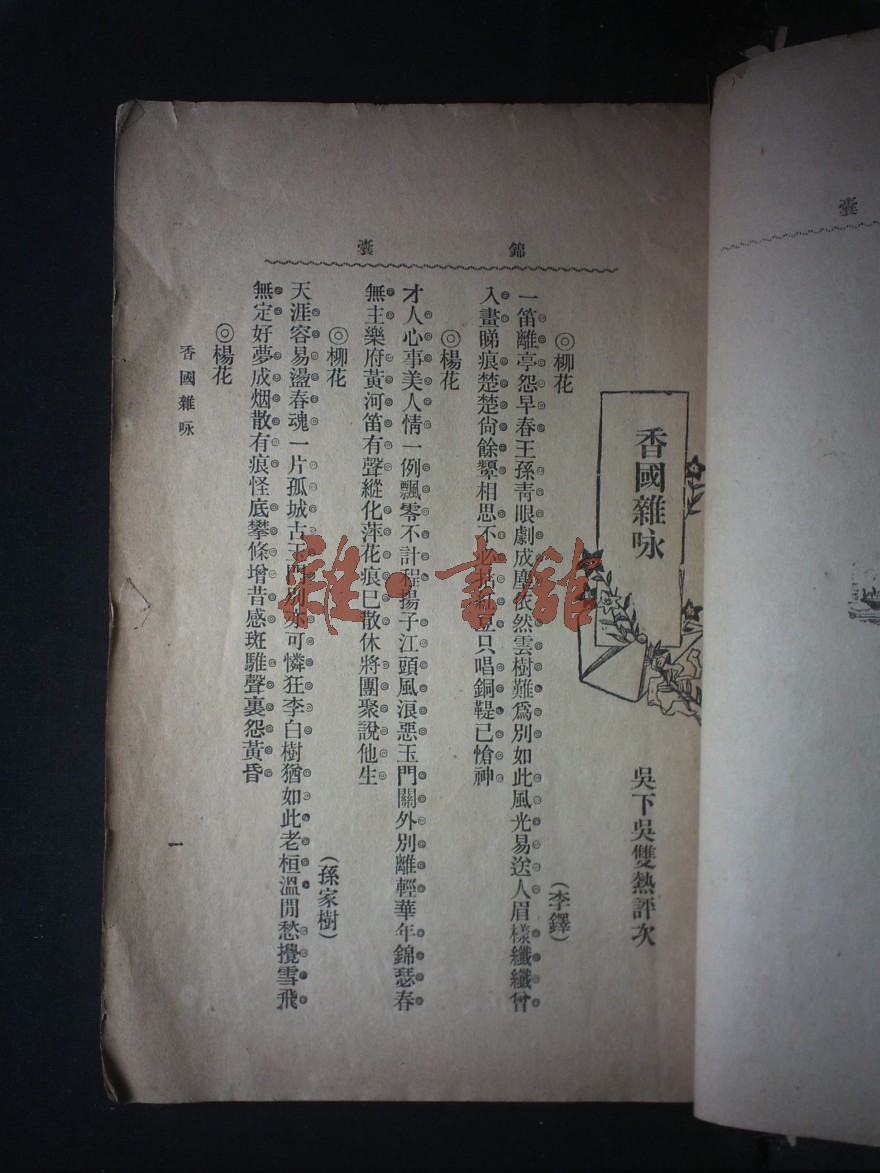 錦囊
香國雜咏
吳下吳雙熱評次
◎柳花
(李鐸)
一笛離亭怨早春王孫靑眼劇成塵依然雲樹難爲別如此風光易送人眉樣纖纖曾
入畫睇痕楚楚尙餘顰相思不必拈紅豆只唱銅鞮已愴神
◎楊花
才人心事美人情一例飄零不計程揚子江頭風浪惡玉門關外別離輕華年錦瑟春
無主樂府黃河笛有聲縱化萍花痕已散休將團聚說他生
◎柳花
(孫家樹)
天涯容易盪春魂一片孤城古玉門別亦可憐狂李白樹猶如此老桓溫閒愁攪雪飛
無定好夢成烟散有痕怪底攀條增昔感斑騅聲裏怨黃昏
◎楊花
香國雜咏
一
雜書館
囊